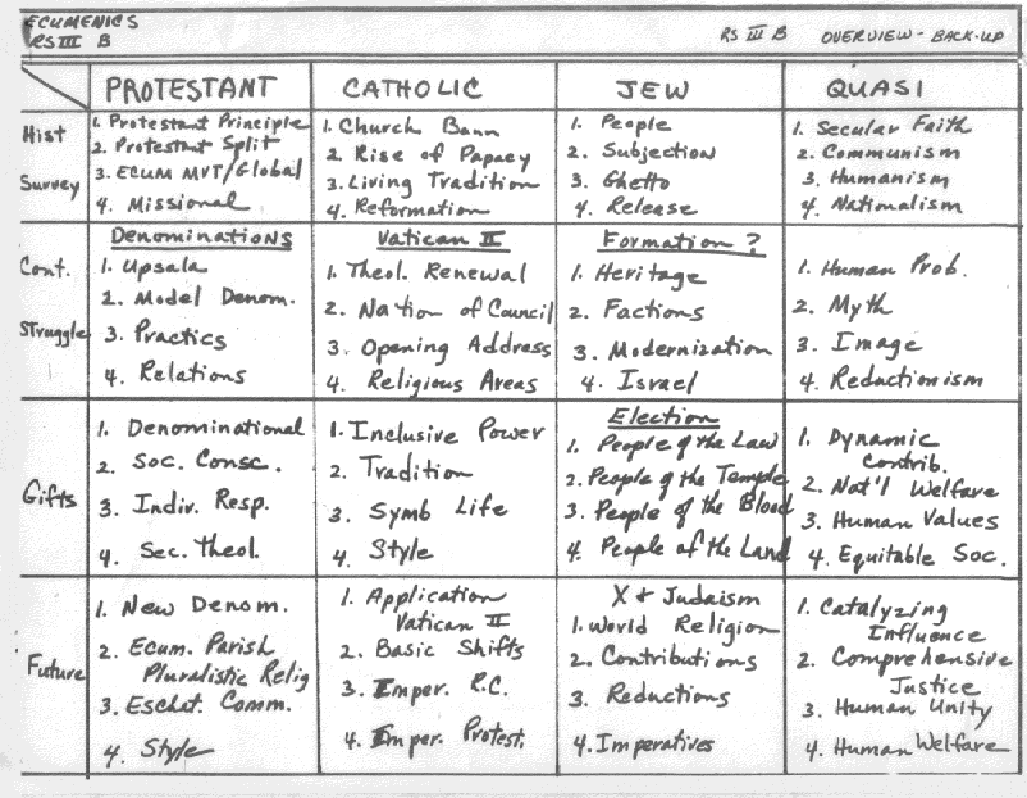 ECUMENICS
RS III B
RS III B OVERVIEW - BACK-UP
PROTESTANT CATHOLIC JEW QUASI
Hist
Survey
1. Protestant Principle
2. Protestant Split
3. ECUM MVT/Global
4. Missional
1. Church Bann
2. Rise of Papacy
3. Living Tradition
4. Reformation
1. People
2. Subjection
3. Ghetto
4. Release
1. Secular Faith
2. Communism
3. Humanism
4. Nationalism
Cont.
Struggle
Denominations
1. Upsala
2. Model Denom.
3. Practices
4. Relations
Vatican II
1. Theol. Renewal
2. Nation of Council
3. Opening Address
4. Religious Areas
Formation ?
1. Heritage
2. Factions
3. Modernization
4. Israel
1. Human Prob.
2. Myth
3. Image
4. Reductionism
Gifts
1. Denominational
2. Soc. Consc.
3. Indiv. Resp.
4. Sec. Theol.
1. Inclusive Power
2. Tradition
3. Symb Life
4. Style
Election
1. People of the Law
2. People of the Temple
3. People of the Blood
4. People of the Land
1. Dynamic
Contrib.
2. Nat'l Welfare
3. Human Values
4. Equitable Soc.
Future
1. New Denom.
2. Ecum. Parish
Pluralistic Relig
3. Eschat. Comm.
4. Style
1. Application
Vatican II
2. Basic Shifts
3. Imper. R.C.
4. Imper. Protest.
X + Judaism
1. World Religion
2. Contributions
3. Reductions
4. Imperatives
1. Catalyzing
Influence
2. Comprehensive
Justice
3. Human Unity
4. Human Welfare